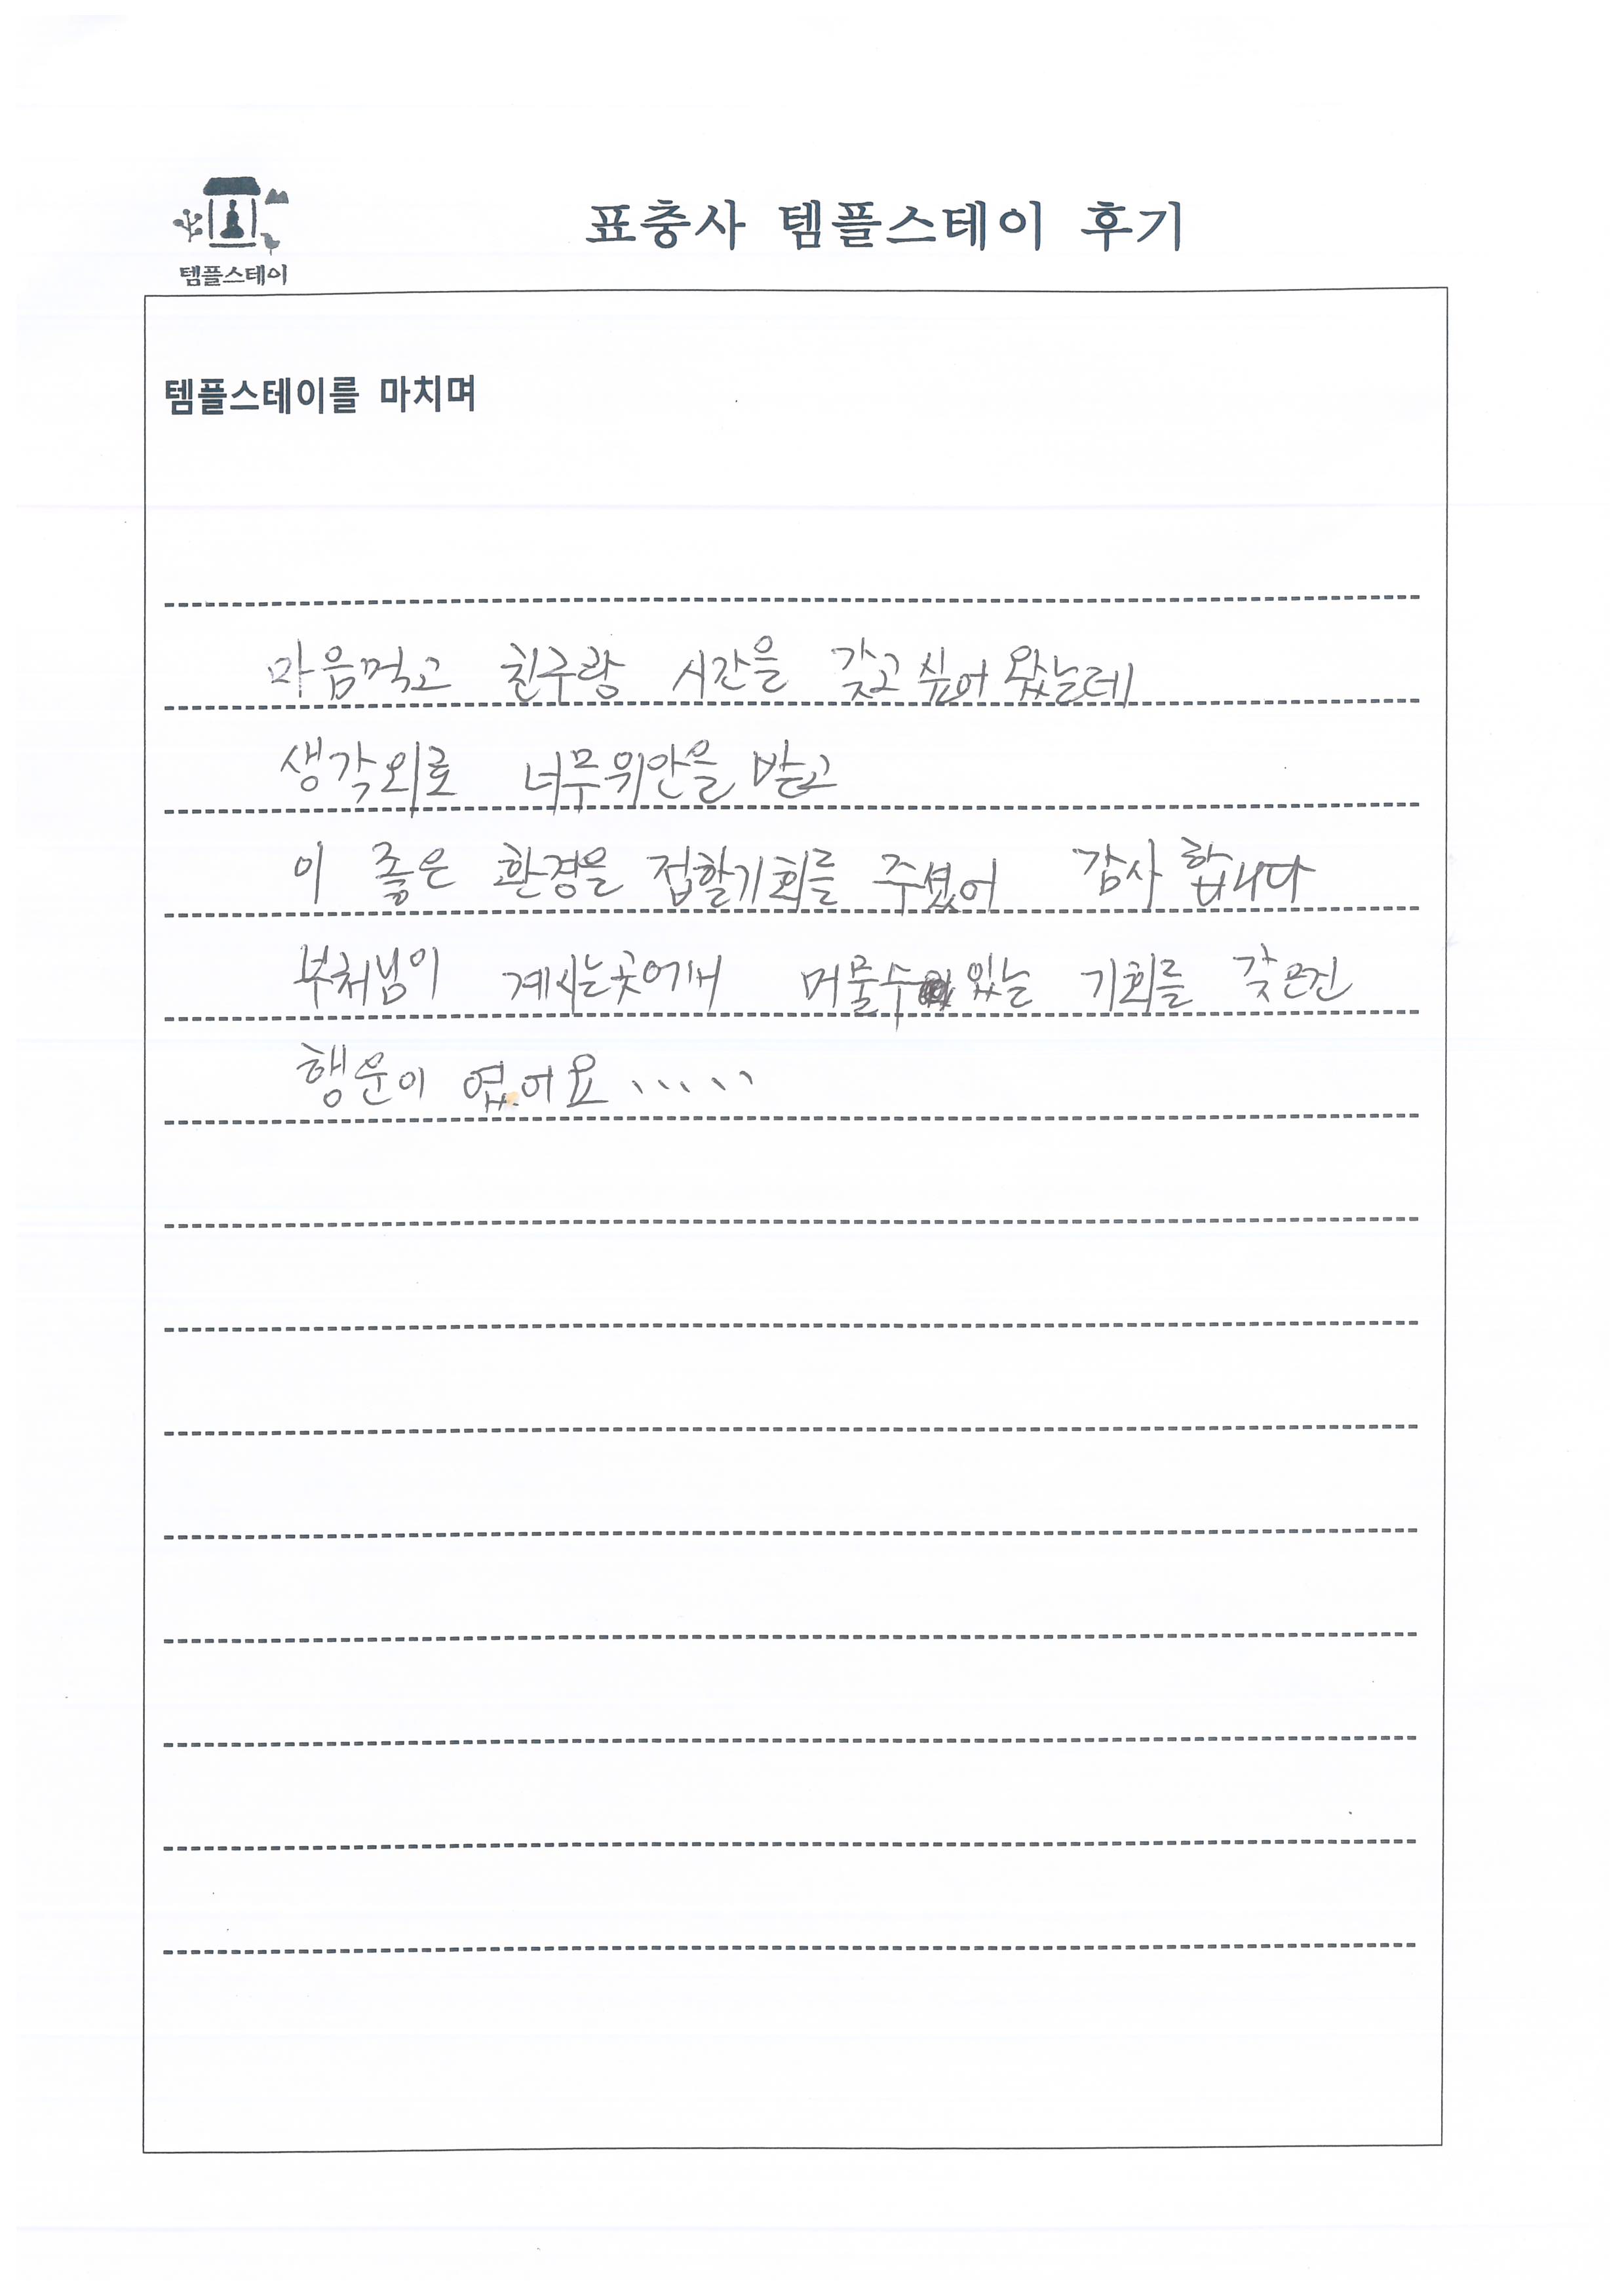 템플스테이
표충사 템플스테이 후기
템플스테이를 마치며
마음먹고 친구랑 시간을 갖고싶어 왔는데
생각외로 너무위안을 받고
이 좋은 환경을 접할기회를 주셨어 감사합니다
부처님이 계시는곳에서 머물수 있는 기회를 갖은건
행운이 였어요.....